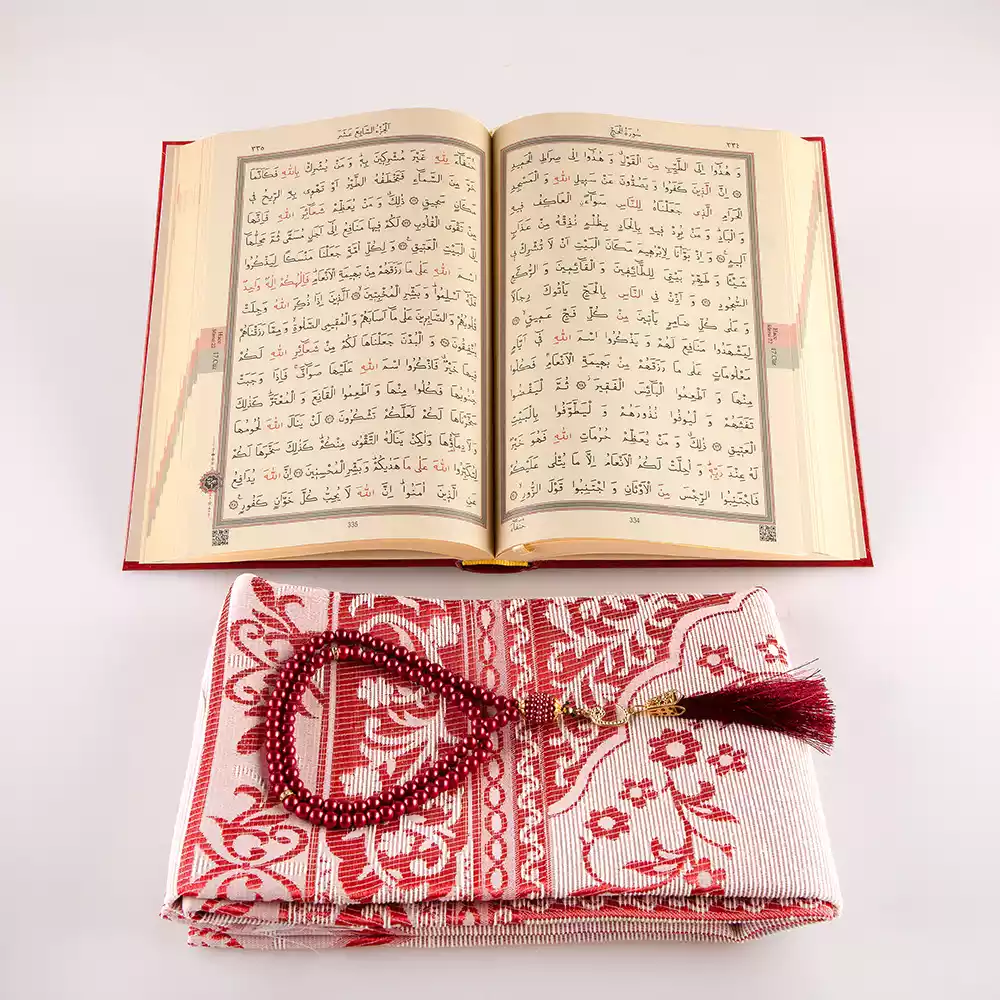 سُورَةُ الْحَجِّ
٣٣٤
وَ هُدُٓوا اِلَى الطَّيِّبِ مِنَ الْقَوْلِۚ وَ هُدُٓوا اِلٰى صِرَاطِ الْحَمِيدِ
۞ اِنَّ الَّذِينَ كَفَرُوا وَ يَصُدُّونَ عَنْ سَبِيلِ اللّٰهِ وَ الْمَسْجِدِ
الْحَرَامِ الَّذِي جَعَلْنَاهُ لِلنَّاسِ سَوَٓاءً الْعَاكِفُ فِيهِ
وَ الْبَادِۜ وَ مَنْ يُرِدْ فِيهِ بِاِلْحَادٍ بِظُلْمٍ نُذِقْهُ مِنْ عَذَابٍ
اَلِيمٍ ۞ وَ اِذْ بَوَّأْنَا لِاِبْرٰهِيمَ مَكَانَ الْبَيْتِ اَنْ لَا تُشْرِكْ بِي
شَيْـًٔا وَ طَهِّرْ بَيْتِيَ لِلطَّٓائِفِينَ وَ الْقَٓائِمِينَ وَ الرُّكَّعِ
السُّجُودِ ۞ وَ اَذِّنْ فِي النَّاسِ بِالْحَجِّ يَأْتُوكَ رِجَالًا
وَ عَلٰى كُلِّ ضَامِرٍ يَأْتِينَ مِنْ كُلِّ فَجٍّ عَمِيقٍ ۞
لِيَشْهَدُوا مَنَافِعَ لَهُمْ وَ يَذْكُرُوا اسْمَ اللّٰهِ فِٓي اَيَّامٍ
مَعْلُومَاتٍ عَلٰى مَا رَزَقَهُمْ مِنْ بَهِيمَةِ الْاَنْعَامِۚ فَكُلُوا
مِنْهَا وَ اَطْعِمُوا الْبَٓائِسَ الْفَقِيرَ ۞ ثُمَّ لْيَقْضُوا
تَفَثَهُمْ وَ لْيُوفُوا نُذُورَهُمْ وَ لْيَطَّوَّفُوا بِالْبَيْتِ
الْعَتِيقِ ۞ ذٰلِكَ وَ مَنْ يُعَظِّمْ حُرُمَاتِ اللّٰهِ فَهُوَ خَيْرٌ
لَهُ عِنْدَ رَبِّهِۜ وَ اُحِلَّتْ لَكُمُ الْاَنْعَامُ اِلَّا مَا يُتْلٰى عَلَيْكُمْ
فَاجْتَنِبُوا الرِّجْسَ مِنَ الْاَوْثَانِ وَ اجْتَنِبُوا قَوْلَ الزُّورِ ۞
حُنَفَٓاءَ
334
Hacc
Sûresi 22
17.Cüz
اَلْجُزْءُ السَّابِعَ عَشَرَ
٣٣٥
حُنَفَٓاءَ لِلّٰهِ غَيْرَ مُشْرِكِينَ بِهِۜ وَ مَنْ يُشْرِكْ بِاللّٰهِ فَكَاَنَّمَا
خَرَّ مِنَ السَّمَٓاءِ فَتَخْطَفُهُ الطَّيْرُ اَوْ تَهْوِي بِهِ الرِّيحُ فِي
مَكَانٍ سَحِيقٍ ۞ ذٰلِكَ وَ مَنْ يُعَظِّمْ شَعَٓائِرَ اللّٰهِ فَاِنَّهَا
مِنْ تَقْوَى الْقُلُوبِ ۞ لَكُمْ فِيهَا مَنَافِعُ اِلٰٓى اَجَلٍ مُسَمًّى ثُمَّ مَحِلُّهَٓا
اِلَى الْبَيْتِ الْعَتِيقِ ۞ وَ لِكُلِّ اُمَّةٍ جَعَلْنَا مَنْسَكًا لِيَذْكُرُوا
اسْمَ اللّٰهِ عَلٰى مَا رَزَقَهُمْ مِنْ بَهِيمَةِ الْاَنْعَامِۜ فَاِلٰهُكُمْ اِلٰهٌ وَاحِدٌ
فَلَهُٓ اَسْلِمُواۜ وَ بَشِّرِ الْمُخْبِتِينَ ۞ اَلَّذِينَ اِذَا ذُكِرَ اللّٰهُ وَجِلَتْ
قُلُوبُهُمْ وَ الصَّابِرِينَ عَلٰى مَٓا اَصَابَهُمْ وَ الْمُقِيمِي الصَّلٰوةِ وَ مِمَّا رَزَقْنَاهُمْ
يُنْفِقُونَ ۞ وَ الْبُدْنَ جَعَلْنَاهَا لَكُمْ مِنْ شَعَٓائِرِ اللّٰهِ لَكُمْ
فِيهَا خَيْرٌ فَاذْكُرُوا اسْمَ اللّٰهِ عَلَيْهَا صَوَٓافَّۚ فَاِذَا وَجَبَتْ
جُنُوبُهَا فَكُلُوا مِنْهَا وَ اَطْعِمُوا الْقَانِعَ وَ الْمُعْتَرَّۜ كَذٰلِكَ
سَخَّرْنَاهَا لَكُمْ لَعَلَّكُمْ تَشْكُرُونَ ۞ لَنْ يَنَالَ اللّٰهَ لُحُومُهَا
وَ لَا دِمَٓاؤُهَا وَلٰكِنْ يَنَالُهُ التَّقْوٰى مِنْكُمْۜ كَذٰلِكَ سَخَّرَهَا لَكُمْ
لِتُكَبِّرُوا اللّٰهَ عَلٰى مَا هَدٰيكُمْۜ وَ بَشِّرِ الْمُحْسِنِينَ ۞ اِنَّ اللّٰهَ يُدَافِعُ
عَنِ الَّذِينَ اٰمَنُواۜ اِنَّ اللّٰهَ لَا يُحِبُّ كُلَّ خَوَّانٍ كَفُورٍ ۞
335
Hacc
Sûresi 22
17.Cüz